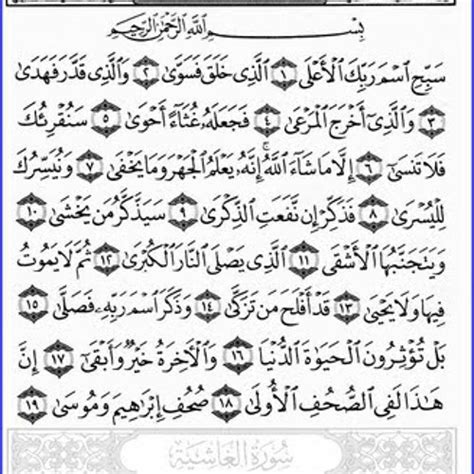 بِسْمِ اللَّهِ الرَّحْمَٰنِ الرَّحِيمِ
سَبِّحِ اسْمَ رَبِّكَ الْأَعْلَى ١ الَّذِي خَلَقَ فَسَوَّىٰ ٢ وَالَّذِي قَدَّرَ فَهَدَىٰ
٣ وَالَّذِي أَخْرَجَ الْمَرْعَىٰ ٤ فَجَعَلَهُ غُثَاءً أَحْوَىٰ ٥ سَنُقْرِئُكَ
فَلَا تَنسَىٰ ٦ إِلَّا مَا شَاءَ اللَّهُ ۚ إِنَّهُ يَعْلَمُ الْجَهْرَ وَمَا يَخْفَىٰ ٧ وَنُيَسِّرُكَ
لِلْيُسْرَىٰ ٨ فَذَكِّرْ إِن نَّفَعَتِ الذِّكْرَىٰ ٩ سَيَذَّكَّرُ مَن يَخْشَىٰ ١٠
وَيَتَجَنَّبُهَا الْأَشْقَى ١١ الَّذِي يَصْلَى النَّارَ الْكُبْرَىٰ ١٢ ثُمَّ لَا يَمُوتُ
فِيهَا وَلَا يَحْيَىٰ ١٣ قَدْ أَفْلَحَ مَن تَزَكَّىٰ ١٤ وَذَكَرَ اسْمَ رَبِّهِ فَصَلَّىٰ ١٥
بَلْ تُؤْثِرُونَ الْحَيَاةَ الدُّنْيَا ١٦ وَالْآخِرَةُ خَيْرٌ وَأَبْقَىٰ ١٧ إِنَّ
هَٰذَا لَفِي الصُّحُفِ الْأُولَىٰ ١٨ صُحُفِ إِبْرَاهِيمَ وَمُوسَىٰ ١٩
سُورَةُ الْغَاشِيَةِ